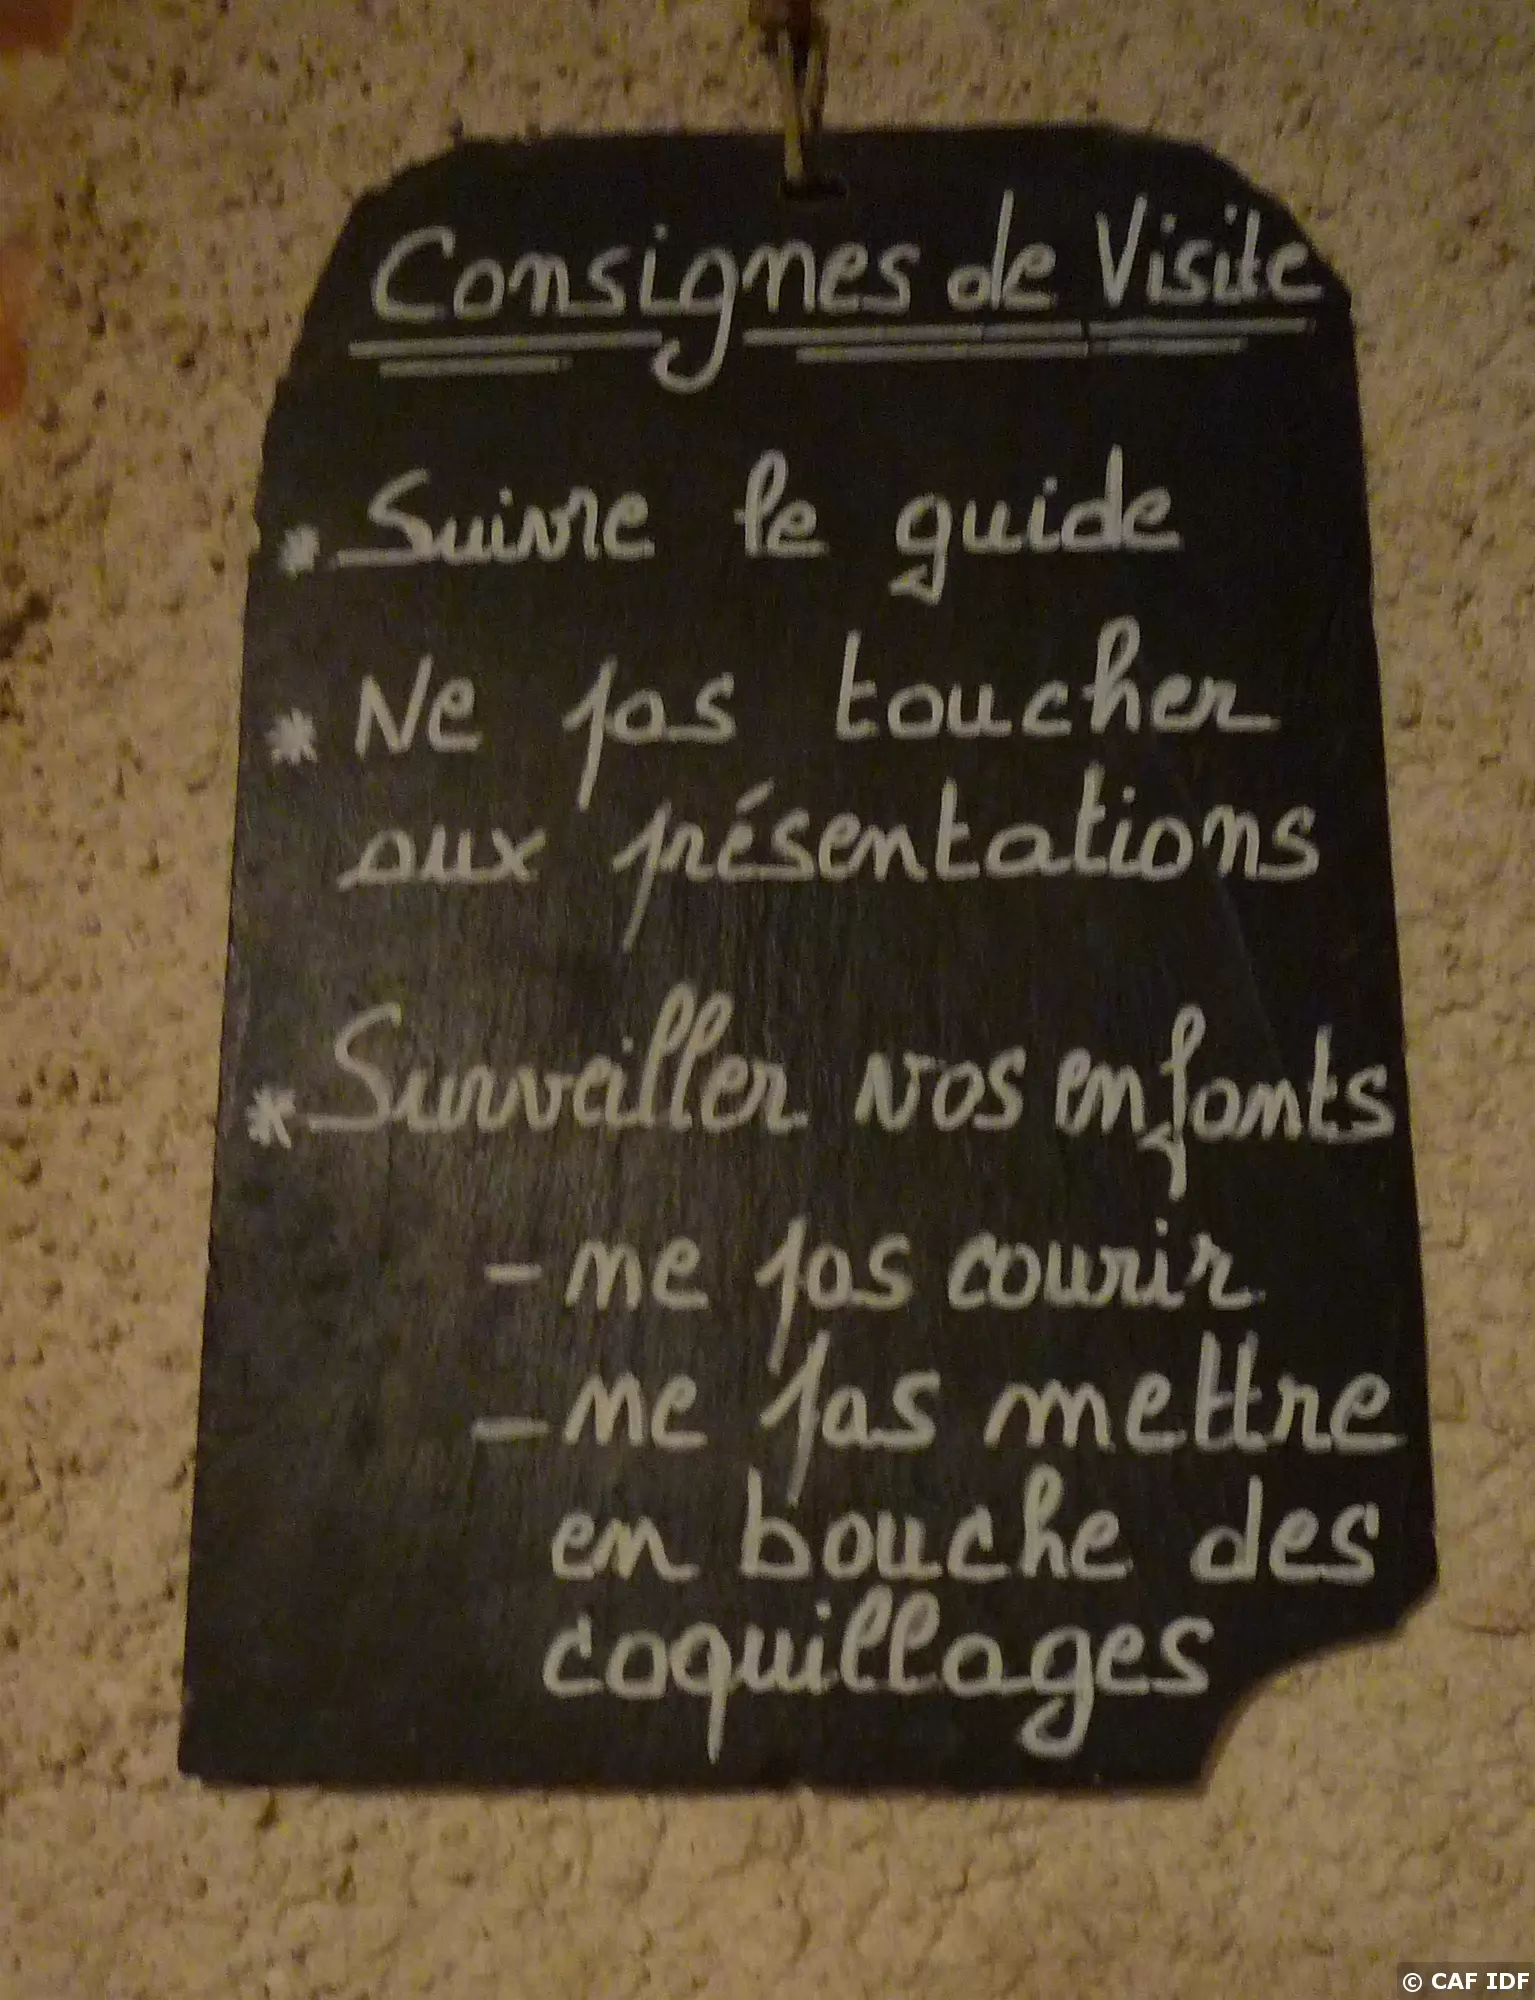 Consignes de Visite
* Suivre le guide
* Ne pas toucher
aux présentations
* Surveiller vos enfants
- ne pas courir
- ne pas mettre
en bouche des
coquillages
© CAF IDF